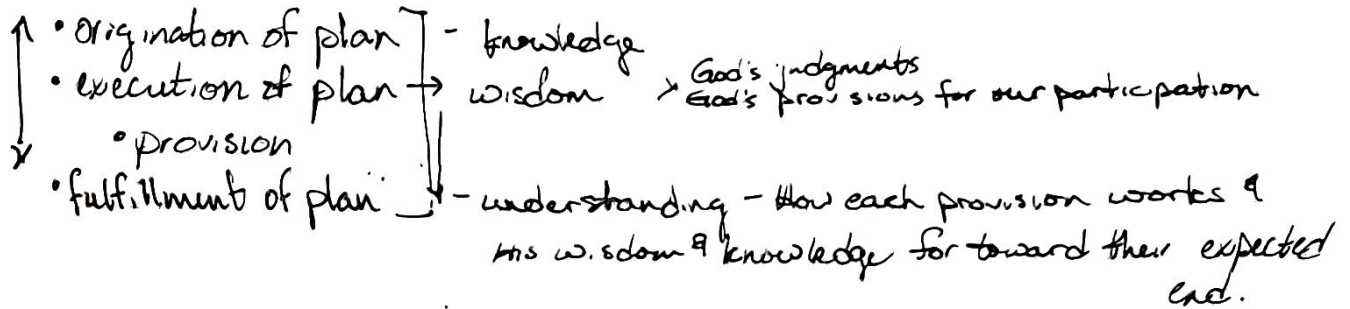 • Origination of plan - knowledge
• execution of plan → wisdom > God's judgments
God's provisions for our participation
• provision
• fulfillment of plan - understanding - How each provision works &
His wisdom & knowledge for toward their expected
end.